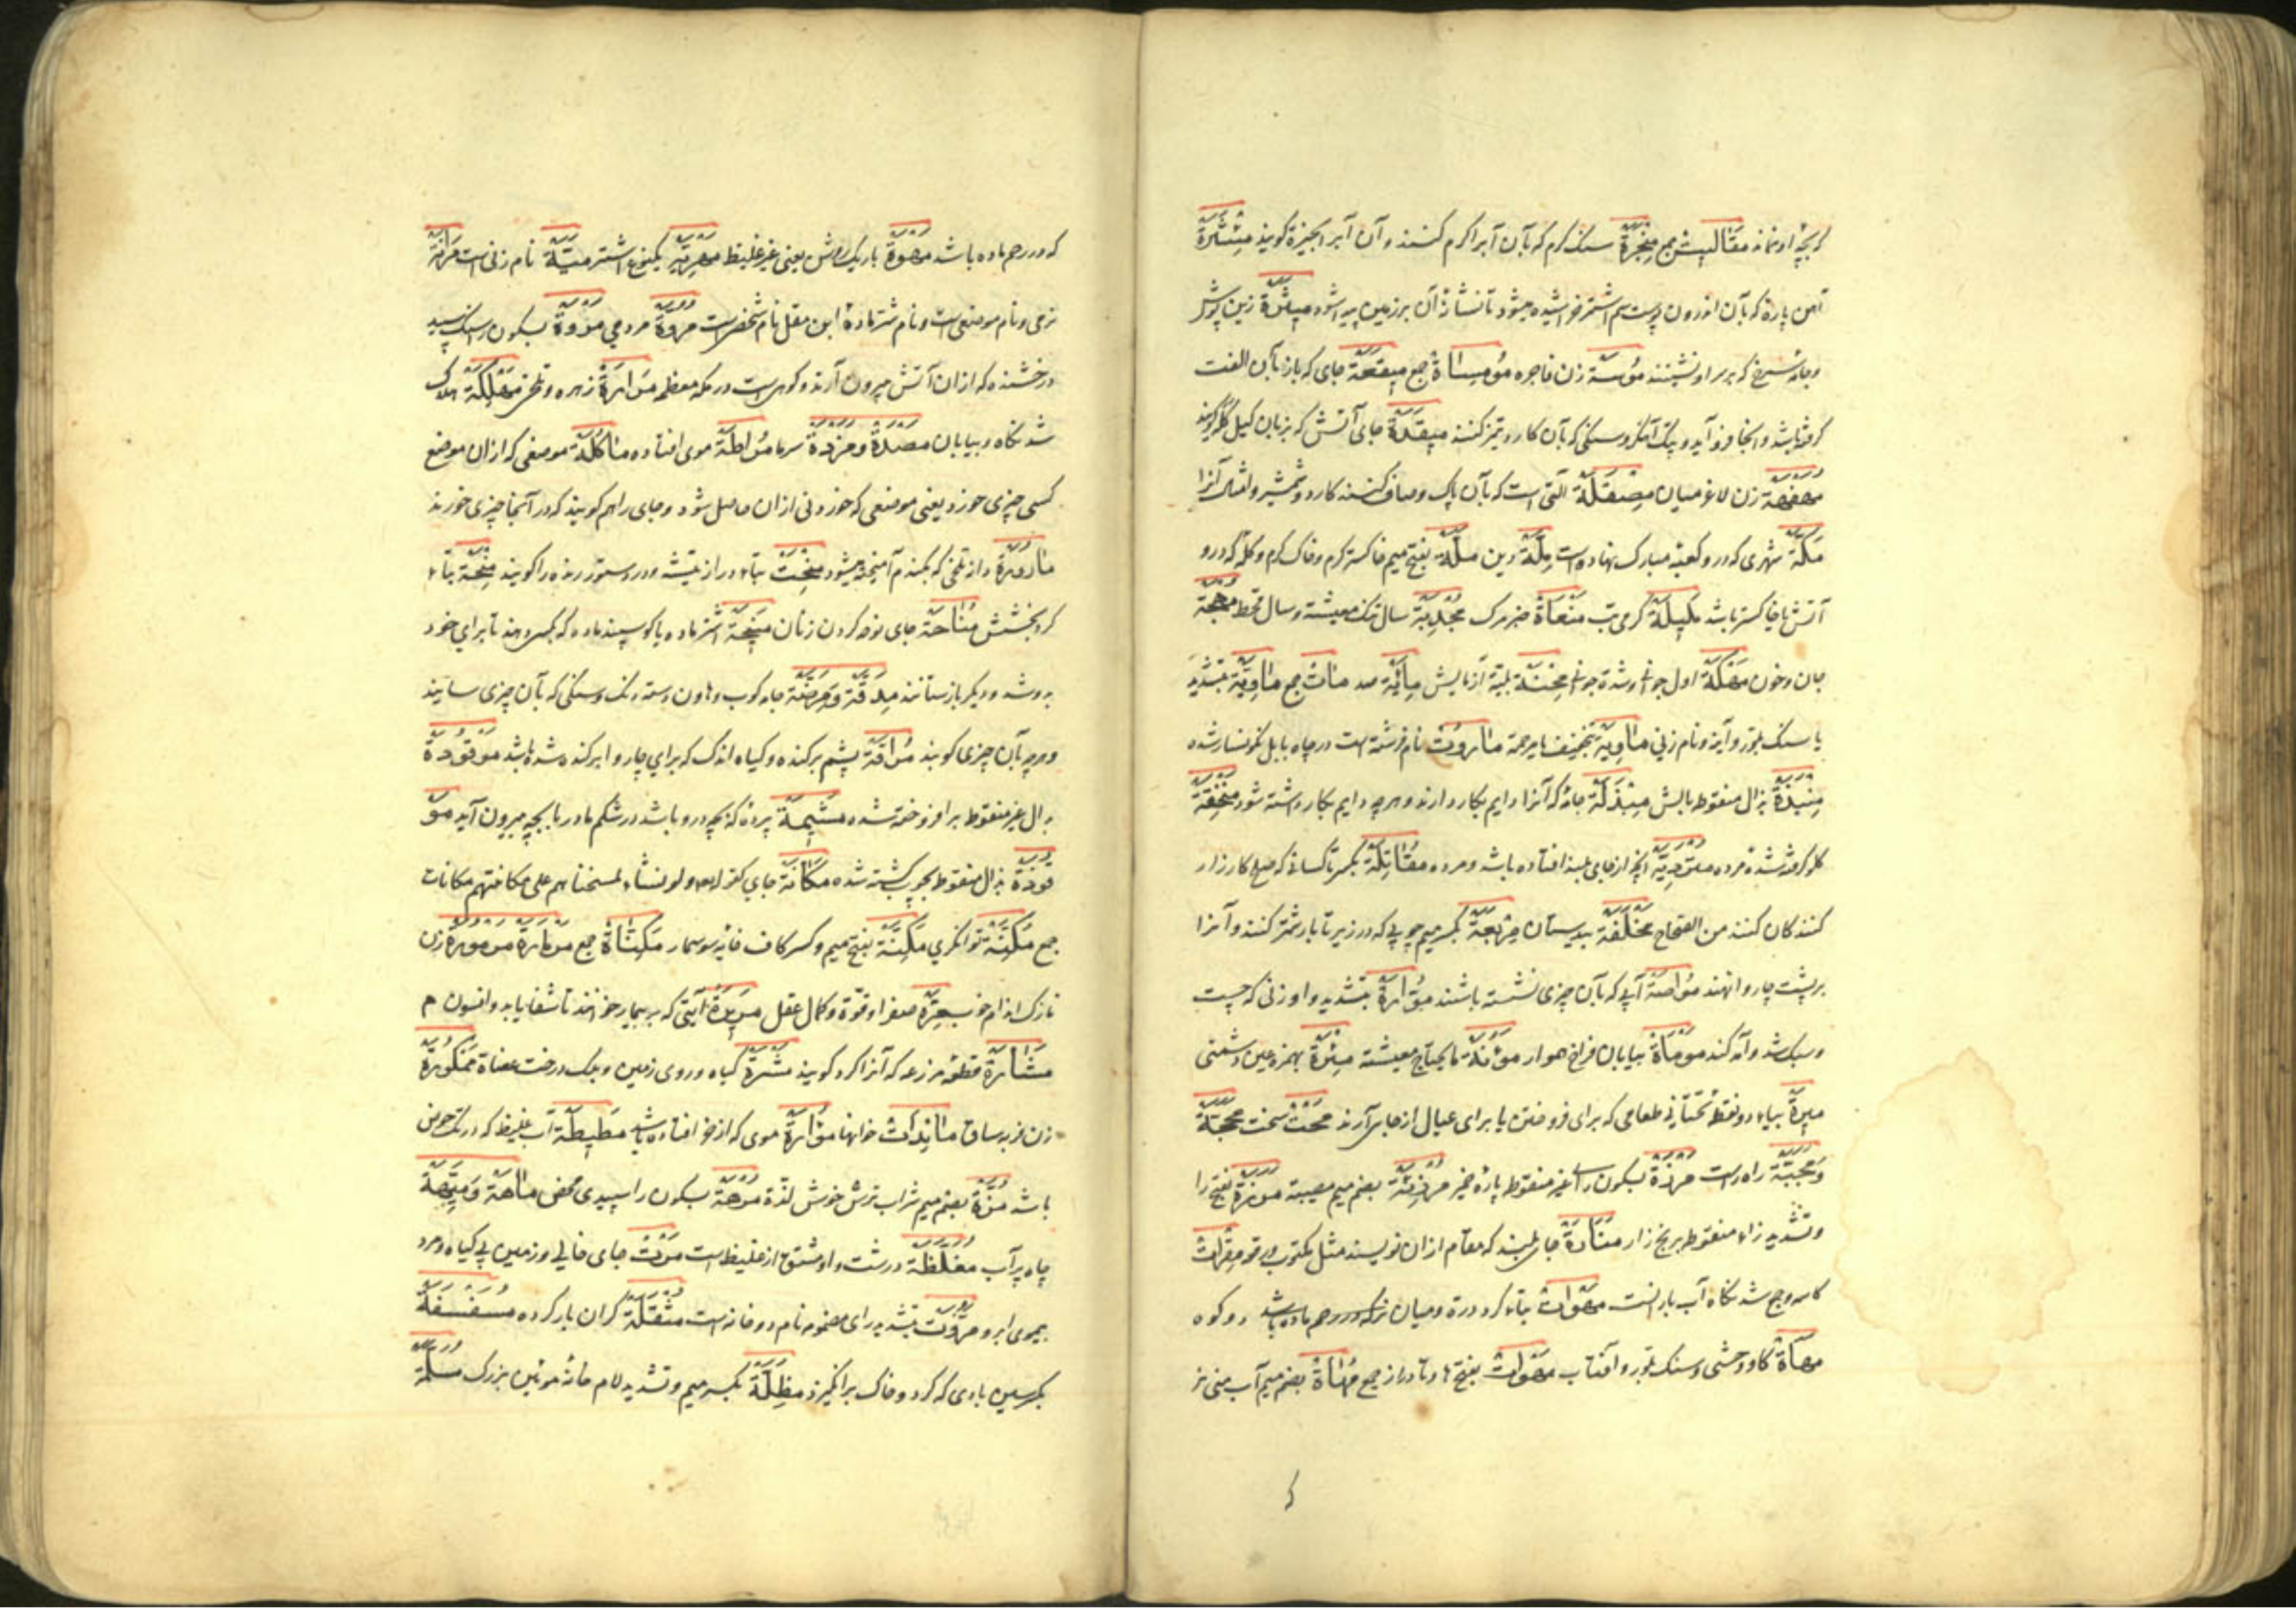 که بچهٔ او نماند مقالیت جمع مِنْجَرَة سنک کرم که بآن آبرا کرم کنند و آن آبرا بجیزه کویند مِیْثَرَة
آهن پاره که بآن اندرون پوست سم اشتر خراشیده میشود تا نشان آن بر زمین پیدا شود مِیثَرَة زین پوش
و جامهٔ سرخ که بر سر او نشینند مُومِسَة زن فاجره مُومِسَاة جمع مِیقَعَة جای که باز بآن الفت
کرفته باشد و آنجا فرود آید و پتک آهنکر و سنکی که بآن کارد تیز کنند مِیقَدَة جای آتش که بزبان کیل کله کویند
مُهَفْهَفَة زن لاغر میان مِصْقَلَة آلتی است که بآن پاک و صاف کنند کارد و شمشیر و امثال آنرا
مَکَّة شهری که درو کعبهٔ مبارک نهاده است مِلَّة دین مَلَّة بفتح میم خاکستر کرم و خاک کرم و کله که درو
آتش با خاکستر باشد مَلِیلَة کرمی تب مَنْعَاة خبر مرک مُجْدِبَة سال تنک معیشت و سال قحط مُهْجَة
جان و خون اول جوانی و شدة جوانی مِحْنَة بلیة آزمایش مِائَة صد مئات جمع مَاوِیَّة بتشدید
یا سنک بلور و آینه و نام زنی مَاوِیَة بتخفیف یا مرحمة مَارُوت نام فرشته است در چاه بابل نکونسار شده
مِنْبَذَة بذال منقوط بالش مِبْذَلَة جامهٔ که آنرا دایم بکار دارند و هر چه دایم بکار داشته شود مُنْخَنِقَة
کلو کرفته شدهٔ مرده مُتَرَدِّیَة آنچه از جای بلند افتاده باشد و مرده مُقَاتِلَة بکسر تا کسانی که صلح کارزار
کنندکان کنند من الصحاح مِرْبَعَة بکسر میم چوبی که در زیر تا بار شتر کنند و آنرا
بر پشت چاروا نهند مُوَاصَة آبی که بآن چیزی شسته باشند بتشدید واو زنی که چست
و سبک شد و آمد کند مَوْمَاة بیابان فراخ هموار مَؤُنَة ما یحتاج معیشت مِئْرَة بهمزه عین دشمنی
مِیرَة بیاء دو نقطه تحتانی طعامی که برای فروختن یا برای عیال از جایی آرند مَحْت سخت مَحَجَّة
راه راست مُرْزَة بسکون رای غیر منقوط پارهٔ خمیر مُرْزِئَة بضم میم مصیبة بفتح را
و تشدید زاء منقوط برنج زار مَنَارَة جای بلند که مقام ازان نویسند مثل مکتوب و رقوم
کاسه و جمع شدنکاه آب باران است مَهَوَات بتاء کرد درة و میان دو کوه
مَهَاة کاو وحشی و سنک بلور و آفتاب مَهَوَات بفتح ها و تا دراز جمع مُهَاة بضم میم آب منی نر
که در رحم ماده باشد مَهْوَة باریک روش یعنی غیر غلیظ مَهْرِیَّة یکنوع اشتر مَیَّة نام زنی است مَرَانَة
نرمی و نام موضعی است و نام شتر مادهٔ ابن مقبل نام شخصی است مُرُوَّة مردمی مَرْوَة بسکون را سنک سپید
درخشنده که ازان آتش بیرون آرند و کوهی است در مکهٔ معظمه مَرَارَة زهره و تلخی مَهْلِکَة هلاک
شدنکاه و بیابان مَصْدَة و مَزْدَة سرما مُرَاطَة موی افتاده مَأْکُلَة موضعی که ازان موضع
کسی چیزی خورد یعنی موضعی که خوردنی ازان حاصل شود و جای را هم کویند که در آنجا چیزی خورند
دانهٔ تلخی که بکندم آمیخته میشود بتاء دراز تیشه و در دستور رنده را کویند مِنْحَة بتاء
کرد بخشش مَنَاحَة جای نوحه کردن زنان مَنِیحَة اشتر ماده یا کوسپند ماده که بکسی دهند تا برای خود
بدوشد و دیکر باز ستانند مِدَقَّة و مِرَضَّة جامه کوب و هاون دسته رنک و سنکی که بآن چیزی سایند
و هر چه بآن چیزی کوبند مُرَاقَة پشم برکنده و کیاه اندک که برای چاروا برکنده شده باشد مَوْقُودَة
بدال غیر منقوط بر افروخته شده مَشِیمَة پردهٔ که بچه درو باشد در شکم مادر تا بچه بیرون آید مَوْ
قُوذَة بذال منقوط بچوب کشته شده مَکَانَة جای کقوله ولو نشاء لمسخناهم علی مکانتهم مکانات
جمع مَکِنَة توانکری مَکِنَة بفتح میم و کسر کاف خایهٔ سوسمار جمع مَرْمَارَة مَرْمُورَة زن
نازک اندام خوب مِرَّة صفرا و قوّة و کمال عقل آیتی که بر بیمار خوانند تا شفا یابد و افسون م
مَشَارَة قطعهٔ مزرعه که آنرا کرد کویند مَشَرَة کیاه و روی زمین و برک درخت عضاة مَمْکُورَة
زن فربه ساق مَائِدَات خوانها مُوَارَة موی که از خر افتاده باشد مَطِیطَة آب غلیظ که در تک حوض
باشد مُزَّة بضم میم شراب ترش خوش لذة مُرْهَة بسکون را سپیدی محض مَاهَة وَ مَیِّهَة
چاه پر آب مُغَلَّظَة درشت و او مشتق از غلیظ است مَرْت جای خالی و زمین بی کیاه و مرد
بیموی ابرو مَرُّوت بتشدید رای مضمومه نام رودخانه است مُثْقَلَة کران بار کرده مُسَفْسِفَة
بکسر سین بادی که کرد و خاک برانکیزد مِظَلَّة بکسر میم و تشدید لام خانهٔ موئین بزرک مُسِلَّة